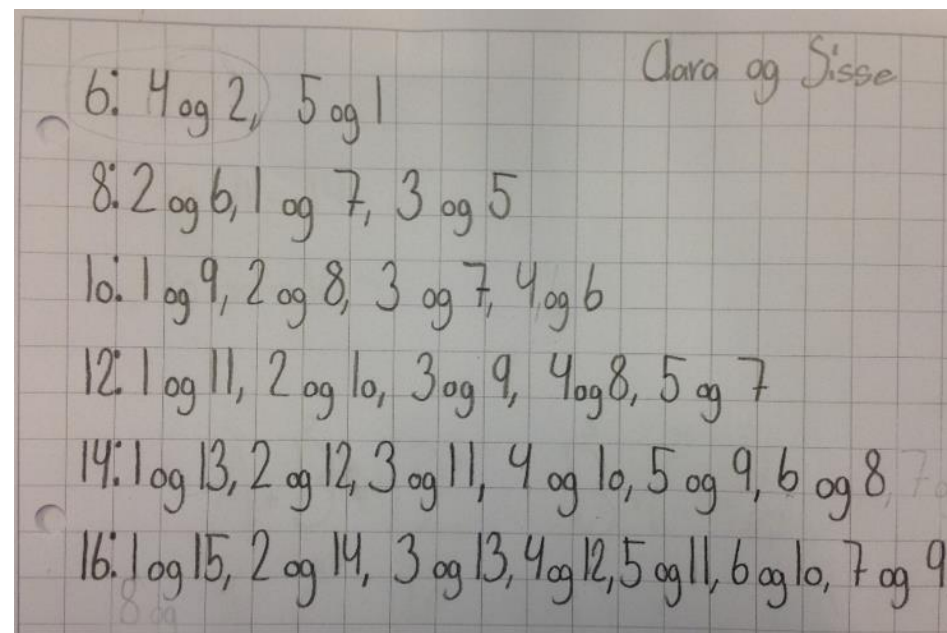 Clara og Sisse
6: 4 og 2, 5 og 1
8: 2 og 6, 1 og 7, 3 og 5
10: 1 og 9, 2 og 8, 3 og 7, 4 og 6
12: 1 og 11, 2 og 10, 3 og 9, 4 og 8, 5 og 7
14: 1 og 13, 2 og 12, 3 og 11, 4 og 10, 5 og 9, 6 og 8
16: 1 og 15, 2 og 14, 3 og 13, 4 og 12, 5 og 11, 6 og 10, 7 og 9
8 og